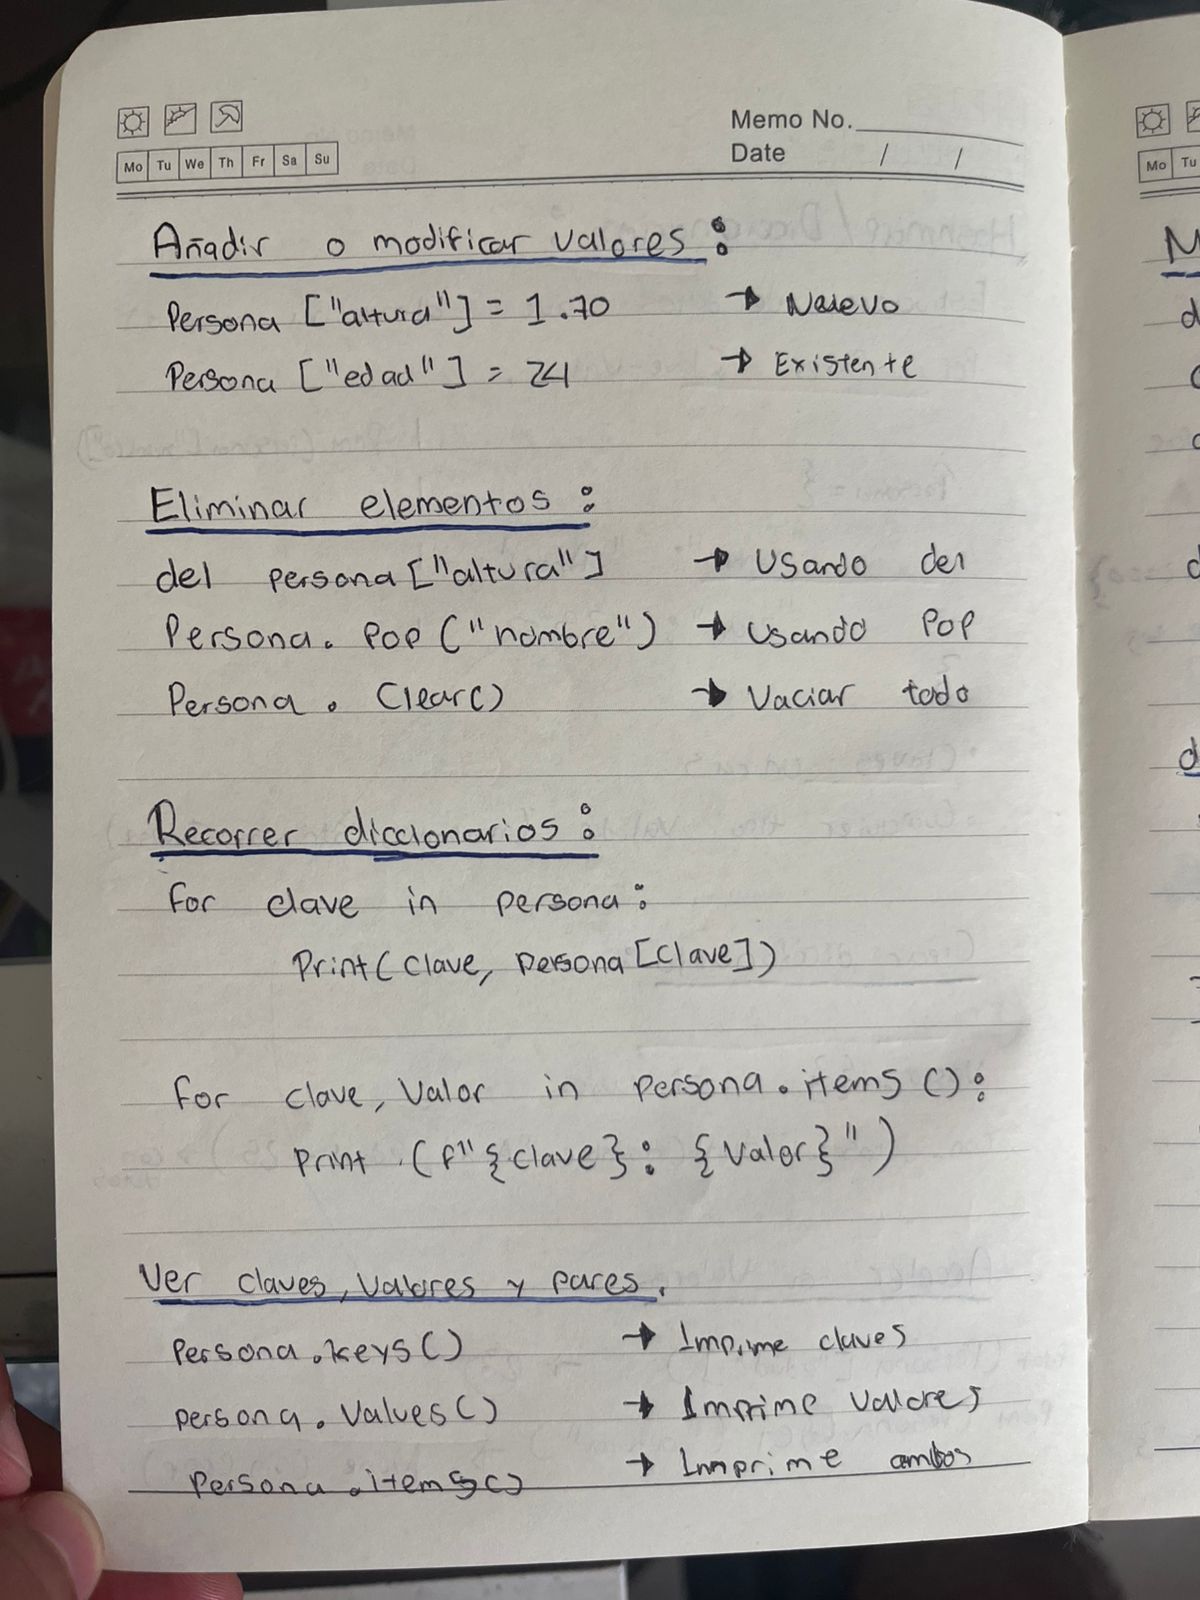 Memo No.
Mo Tu We Th Fr Sa Su
Date / /
Añadir o modificar valores:
Persona ["altura"] = 1.70 → Nuevo
Persona ["edad"] = 24 → Existente
Eliminar elementos:
del persona ["altura"] → Usando del
Persona. Pop ("nombre") → Usando Pop
Persona. Clear() → Vaciar todo
Recorrer diccionarios:
For clave in persona:
Print(clave, persona [clave])
For clave, Valor in persona.items ():
Print (f"{clave}: {Valor}")
Ver claves, Valores y pares.
Persona.keys() → Imprime claves
persona. Values() → Imprime Valores
Persona.items() → Imprime ambos
Mo Tu